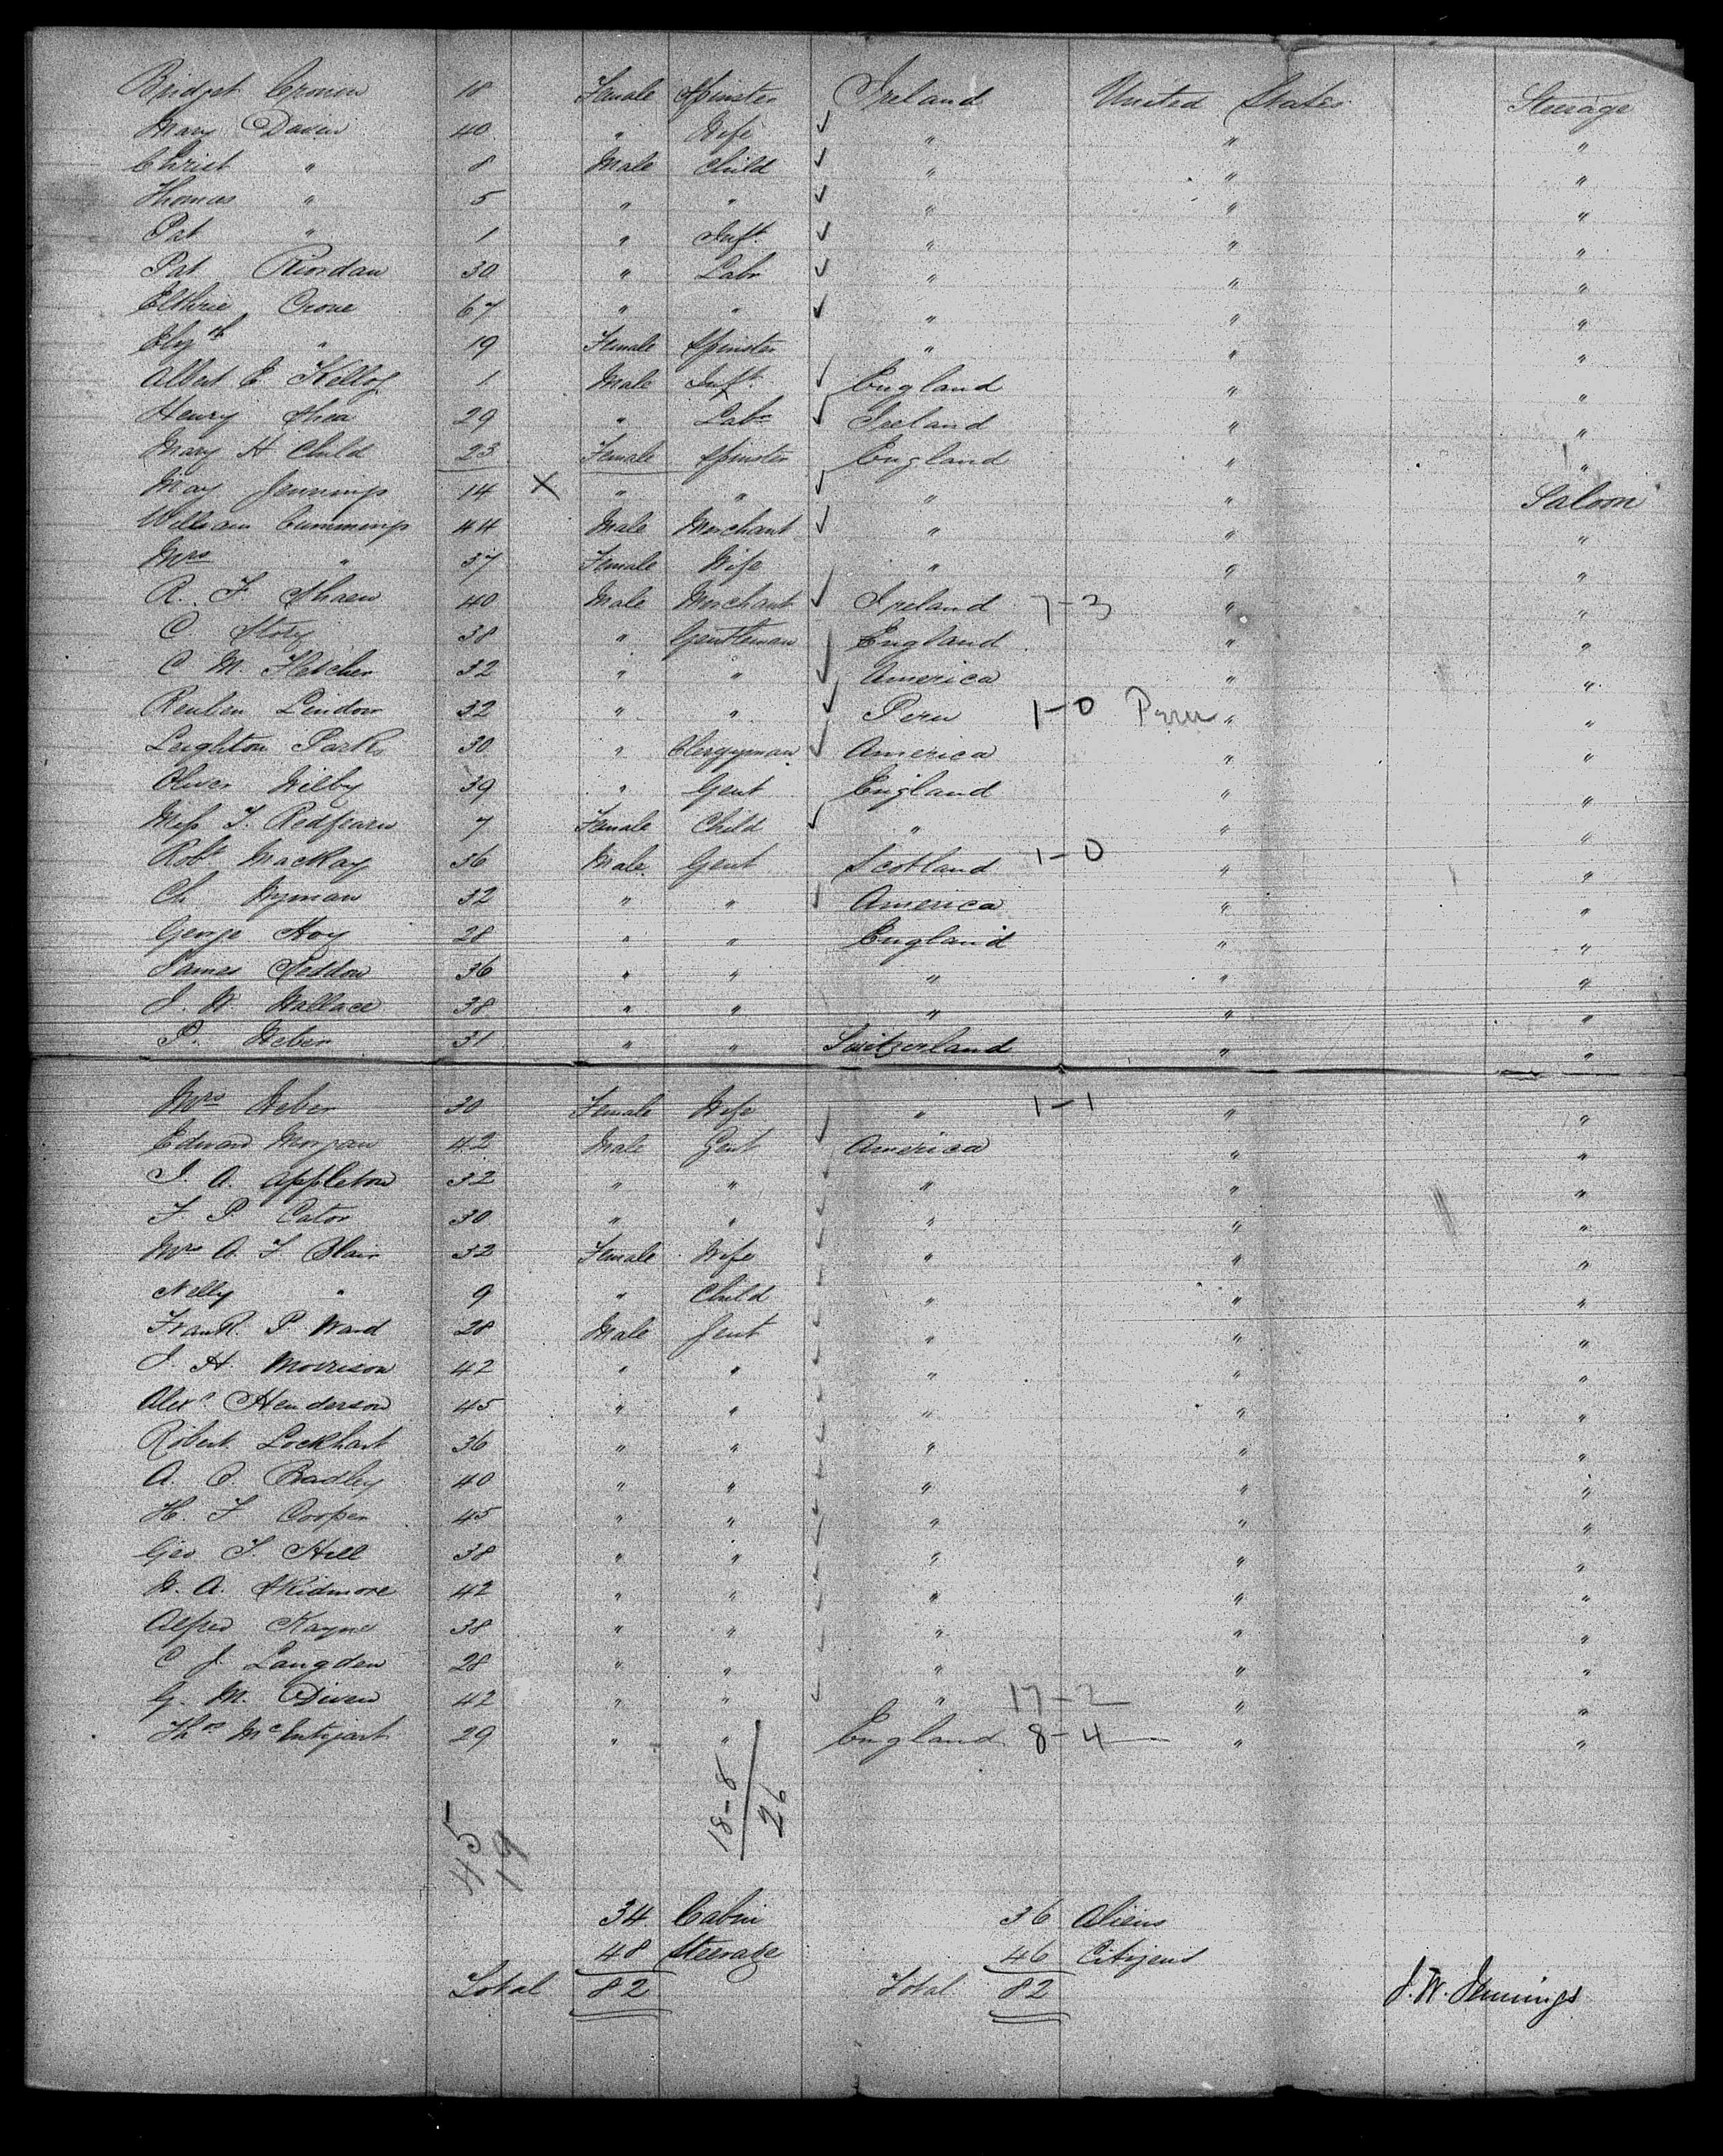 Bridget Cronin 18 Female Spinster Ireland United States Steerage
Mary Daven 40 " Wife " " "
Christ " 8 Male Child " " "
Thomas " 5 " " " " "
Pat " 1 " Inft " " "
Pat Riordan 30 " Labr " " "
Crone 67 " " " " "
Elizth " 19 Female Spinster " " "
Albert E Kellog 1 Male Inft England " "
Henry Shea 29 " Labr Ireland " "
Mary H Child 23 Female Spinster England " "
May Jennings 14 X " " " " Saloon
William Cummings 44 Male Merchant " " "
Mrs " 37 Female Wife " " "
R. F. Shaen 40 Male Merchant Ireland 7-3 " "
C. Story 38 " Gentleman England " "
C M. Fletcher 32 " " America " "
Reuben Lindow 32 " " Peru 1-0 Peru " "
Leighton Parks 30 " Clergyman America " "
Oliver Wilby 39 " Gent England " "
Miss T. Redfearn 7 Female Child " " "
Robt MacKay 36 Male Gent Scotland 1-0 " "
Ch Wyman 32 " " America " "
George Hoy 28 " " England " "
James Seddon 36 " " " " "
J. W. Wallace 38 " " " " "
P. Weber 31 " " Switzerland " "
Mrs Weber 30 Female Wife " 1-1 " "
Edward Morgan 42 Male Gent America " "
J. A. Appleton 32 " " " " "
F. P. Cator 30 " " " " "
Mrs A. T. Blair 32 Female Wife " " "
Nelly " 9 " Child " " "
Frank. P. Ward 28 Male Gent " " "
J. H. Morrison 42 " " " " "
Alexr Henderson 45 " " " " "
Robert Lockhart 36 " " " " "
A. O. Bradley 40 " " " " "
H. F. Cooper 45 " " " " "
Geo T. Hill 38 " " " " "
W. A. Skidmore 42 " " " " "
Alfred Kayne 38 " " " " "
C J. Langden 28 " " " " "
G. M. Diven 42 " " " 17-2 " "
Thos McEntyart 29 " " England 8-4 " "
18-8
26
45
19
34 Cabin 36 Aliens
48 Steerage 46 Citizens
Total 82 Total 82
J. W. Jennings